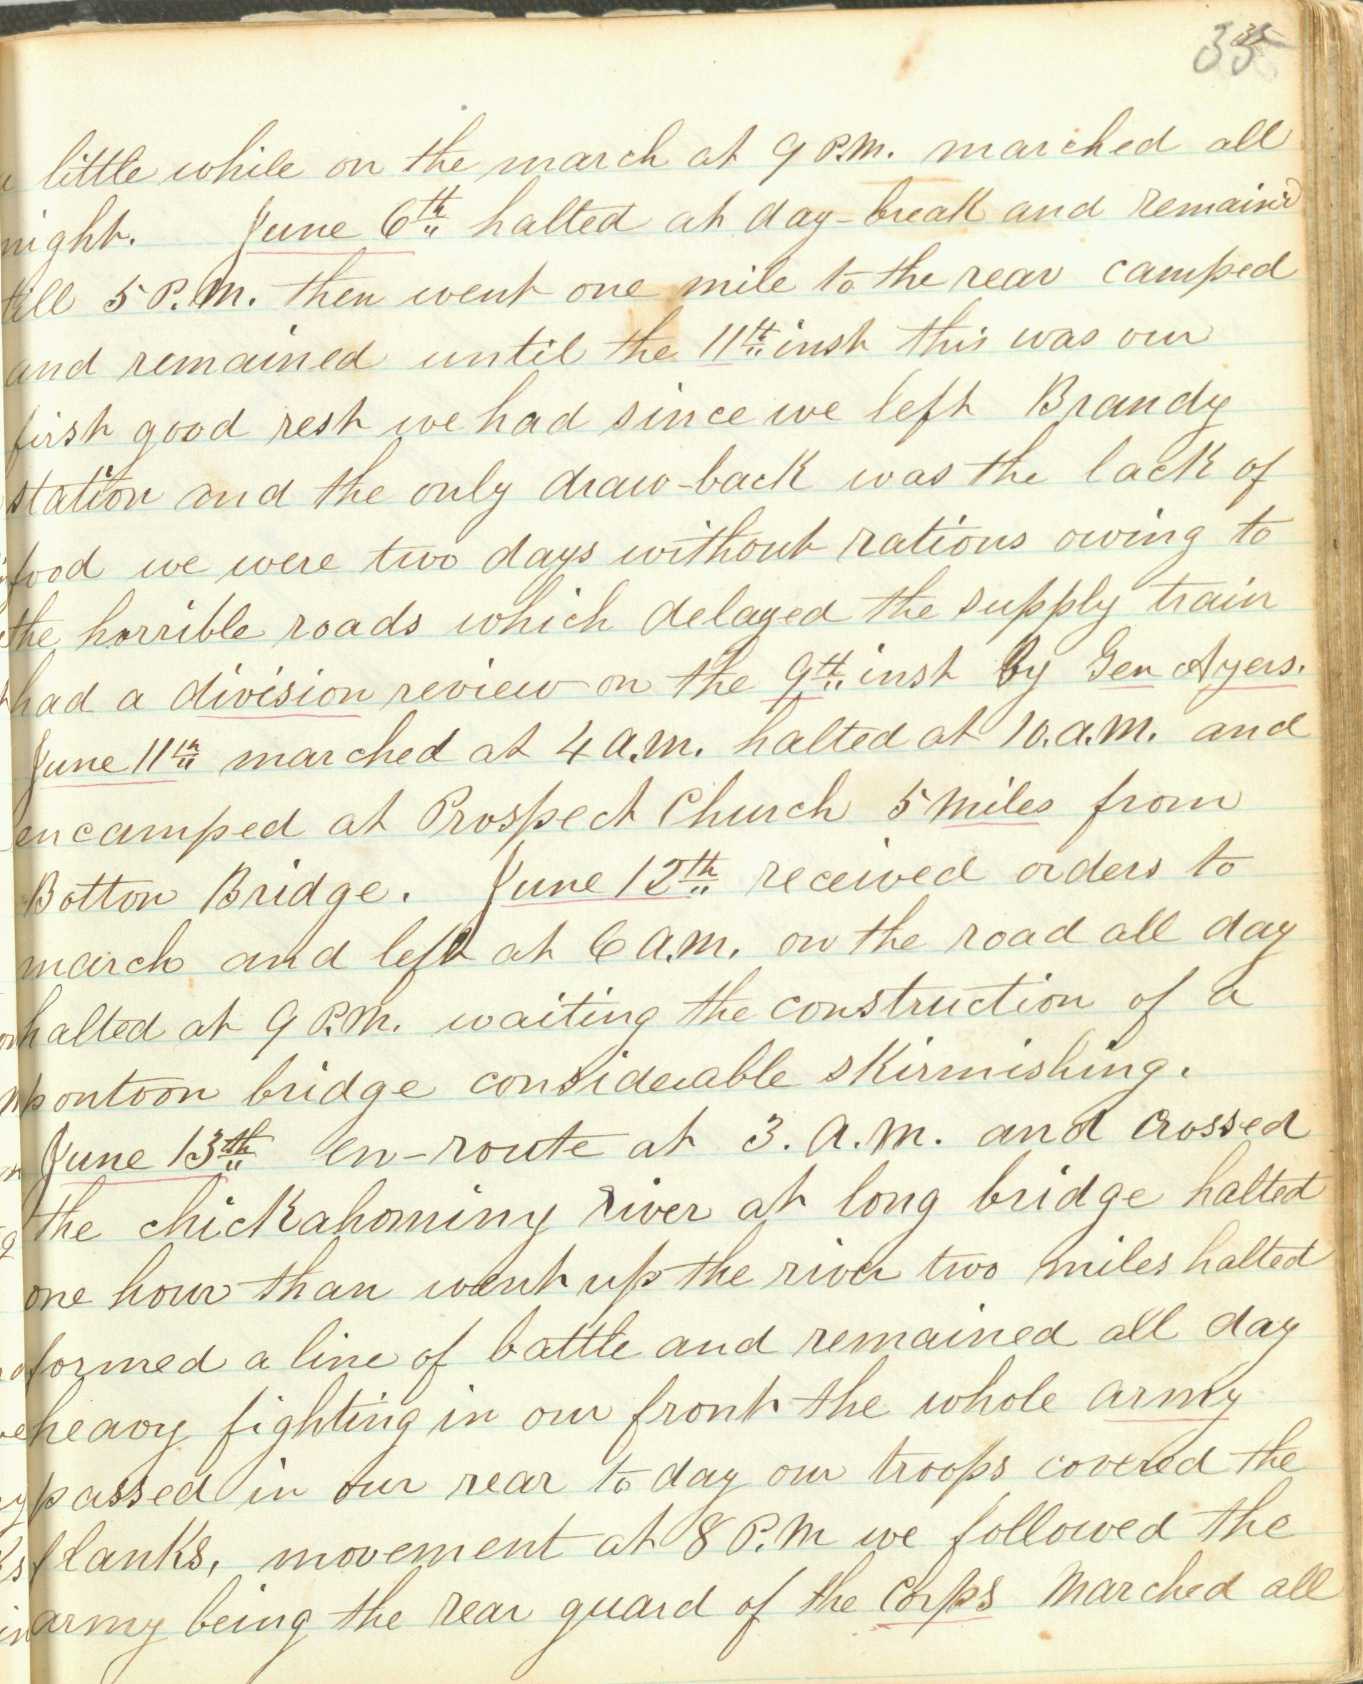 35
a little while on the march at 9 P.M. marched all
night. June 6th halted at day-break and remain'd
till 5 P.M. then went one mile to the rear camped
and remained until the 11th inst this was our
first good rest we had since we left Brandy
station and the only draw-back was the lack of
food we were two days without rations owing to
the horrible roads which delayed the supply train
had a division review on the 9th inst By Gen Ayers.
June 11th marched at 4 a.m. halted at 10. a.m. and
encamped at Prospect Church 5 miles from
Botton Bridge. June 12th received orders to
march and left at 6 a.m. on the road all day
halted at 9 P.M. waiting the construction of a
pontoon bridge considerable skirmishing.
June 13th en-route at 3. a.m. and crossed
the chickahominy river at long bridge halted
one hour than went up the river two miles halted
formed a line of battle and remained all day
heavy fighting in our front the whole army
passed in our rear to day our troops covered the
flanks, movement at 8 P.M we followed the
army being the rear guard of the corps Marched all